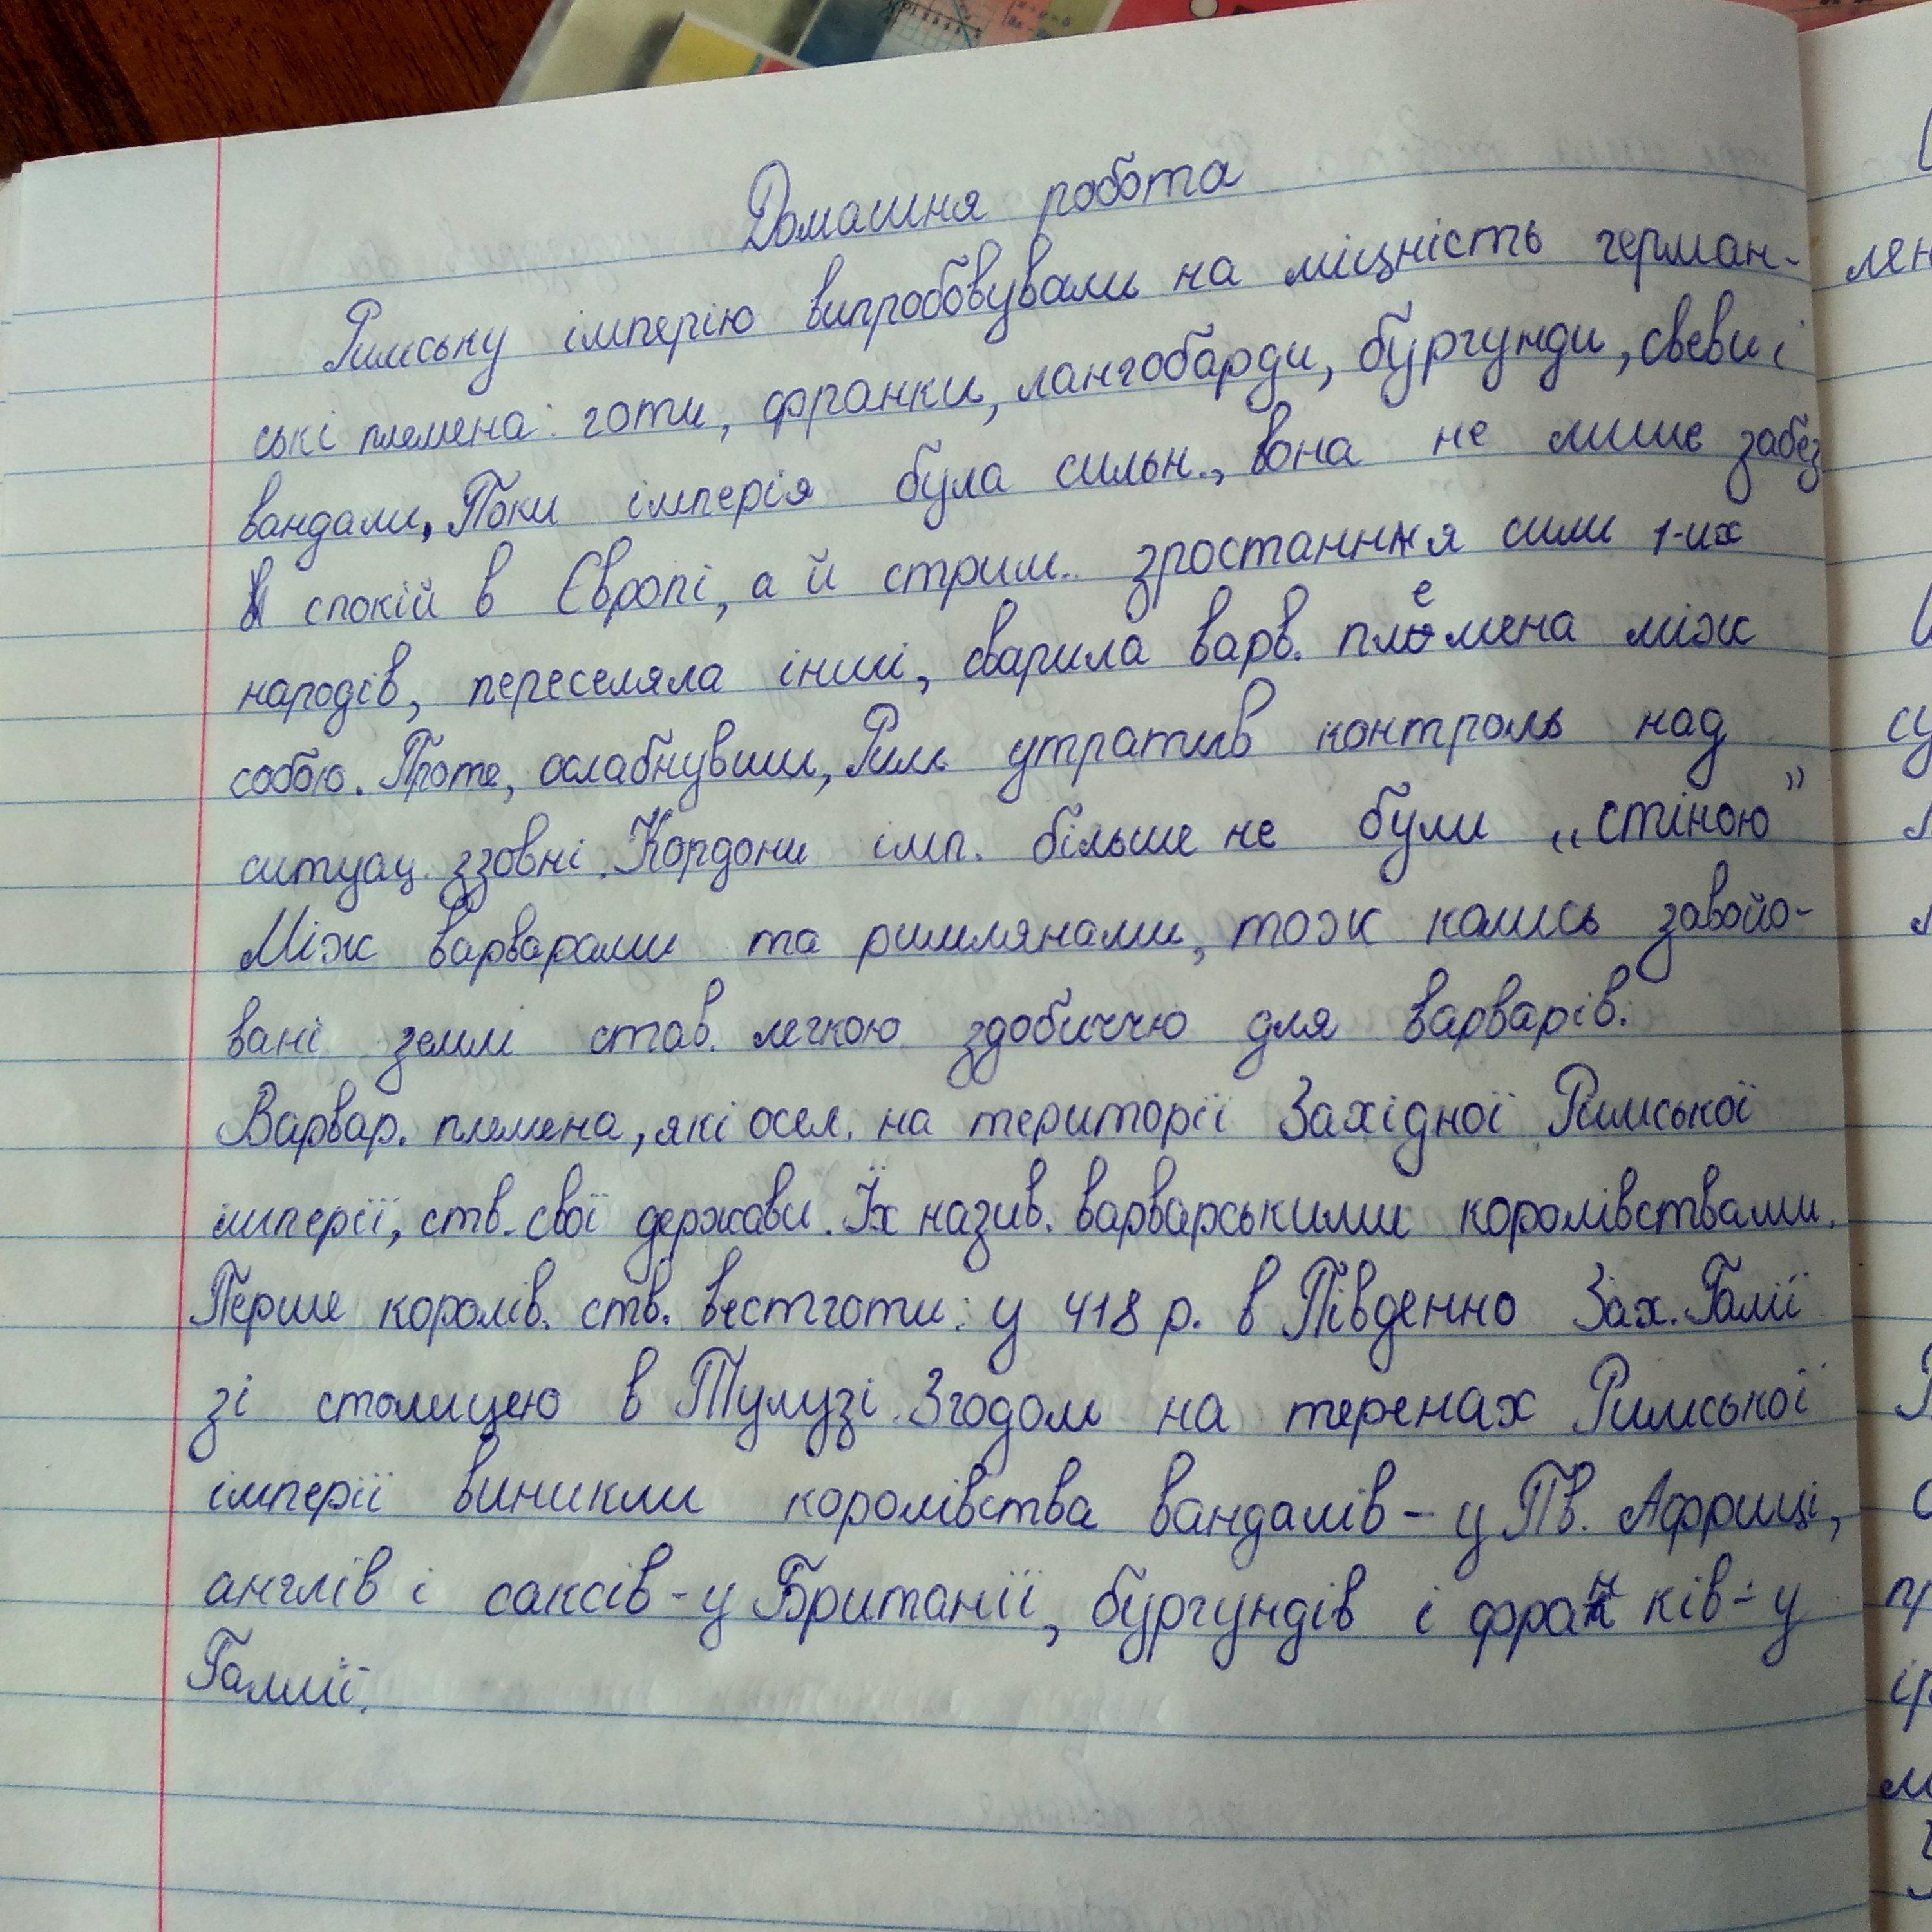 Домашня робота
Римську імперію випробовували на міцність герман-
ські племена: готи, франки, лангобарди, бургунди, свеви і
вандали. Поки імперія була сильн., вона не лише забез
спокій в Європі, а й стрим.. зростання сили 1-их
народів, переселяла інші, сварила варв. племена між
собою. Проте, ослабнувши, Рим утратив контроль над
ситуац. ззовні. Кордони імп. більше не були „стіною”
Між варварами та римлянами, тож колись завойо-
вані землі став. легкою здобиччю для варварів.
Варвар. племена, які осел. на території Західної Римської
імперії, ств. свої держави. Їх назив. варварськими королівствами.
Перше королів. ств. вестготи: у 418 р. в Південно Зах. Галії
зі столицею в Тулузі. Згодом на теренах Римської
імперії виникли королівства вандалів – у Пв. Африці,
англів і саксів – у Британії, бургундів і франків – у
Галлії.